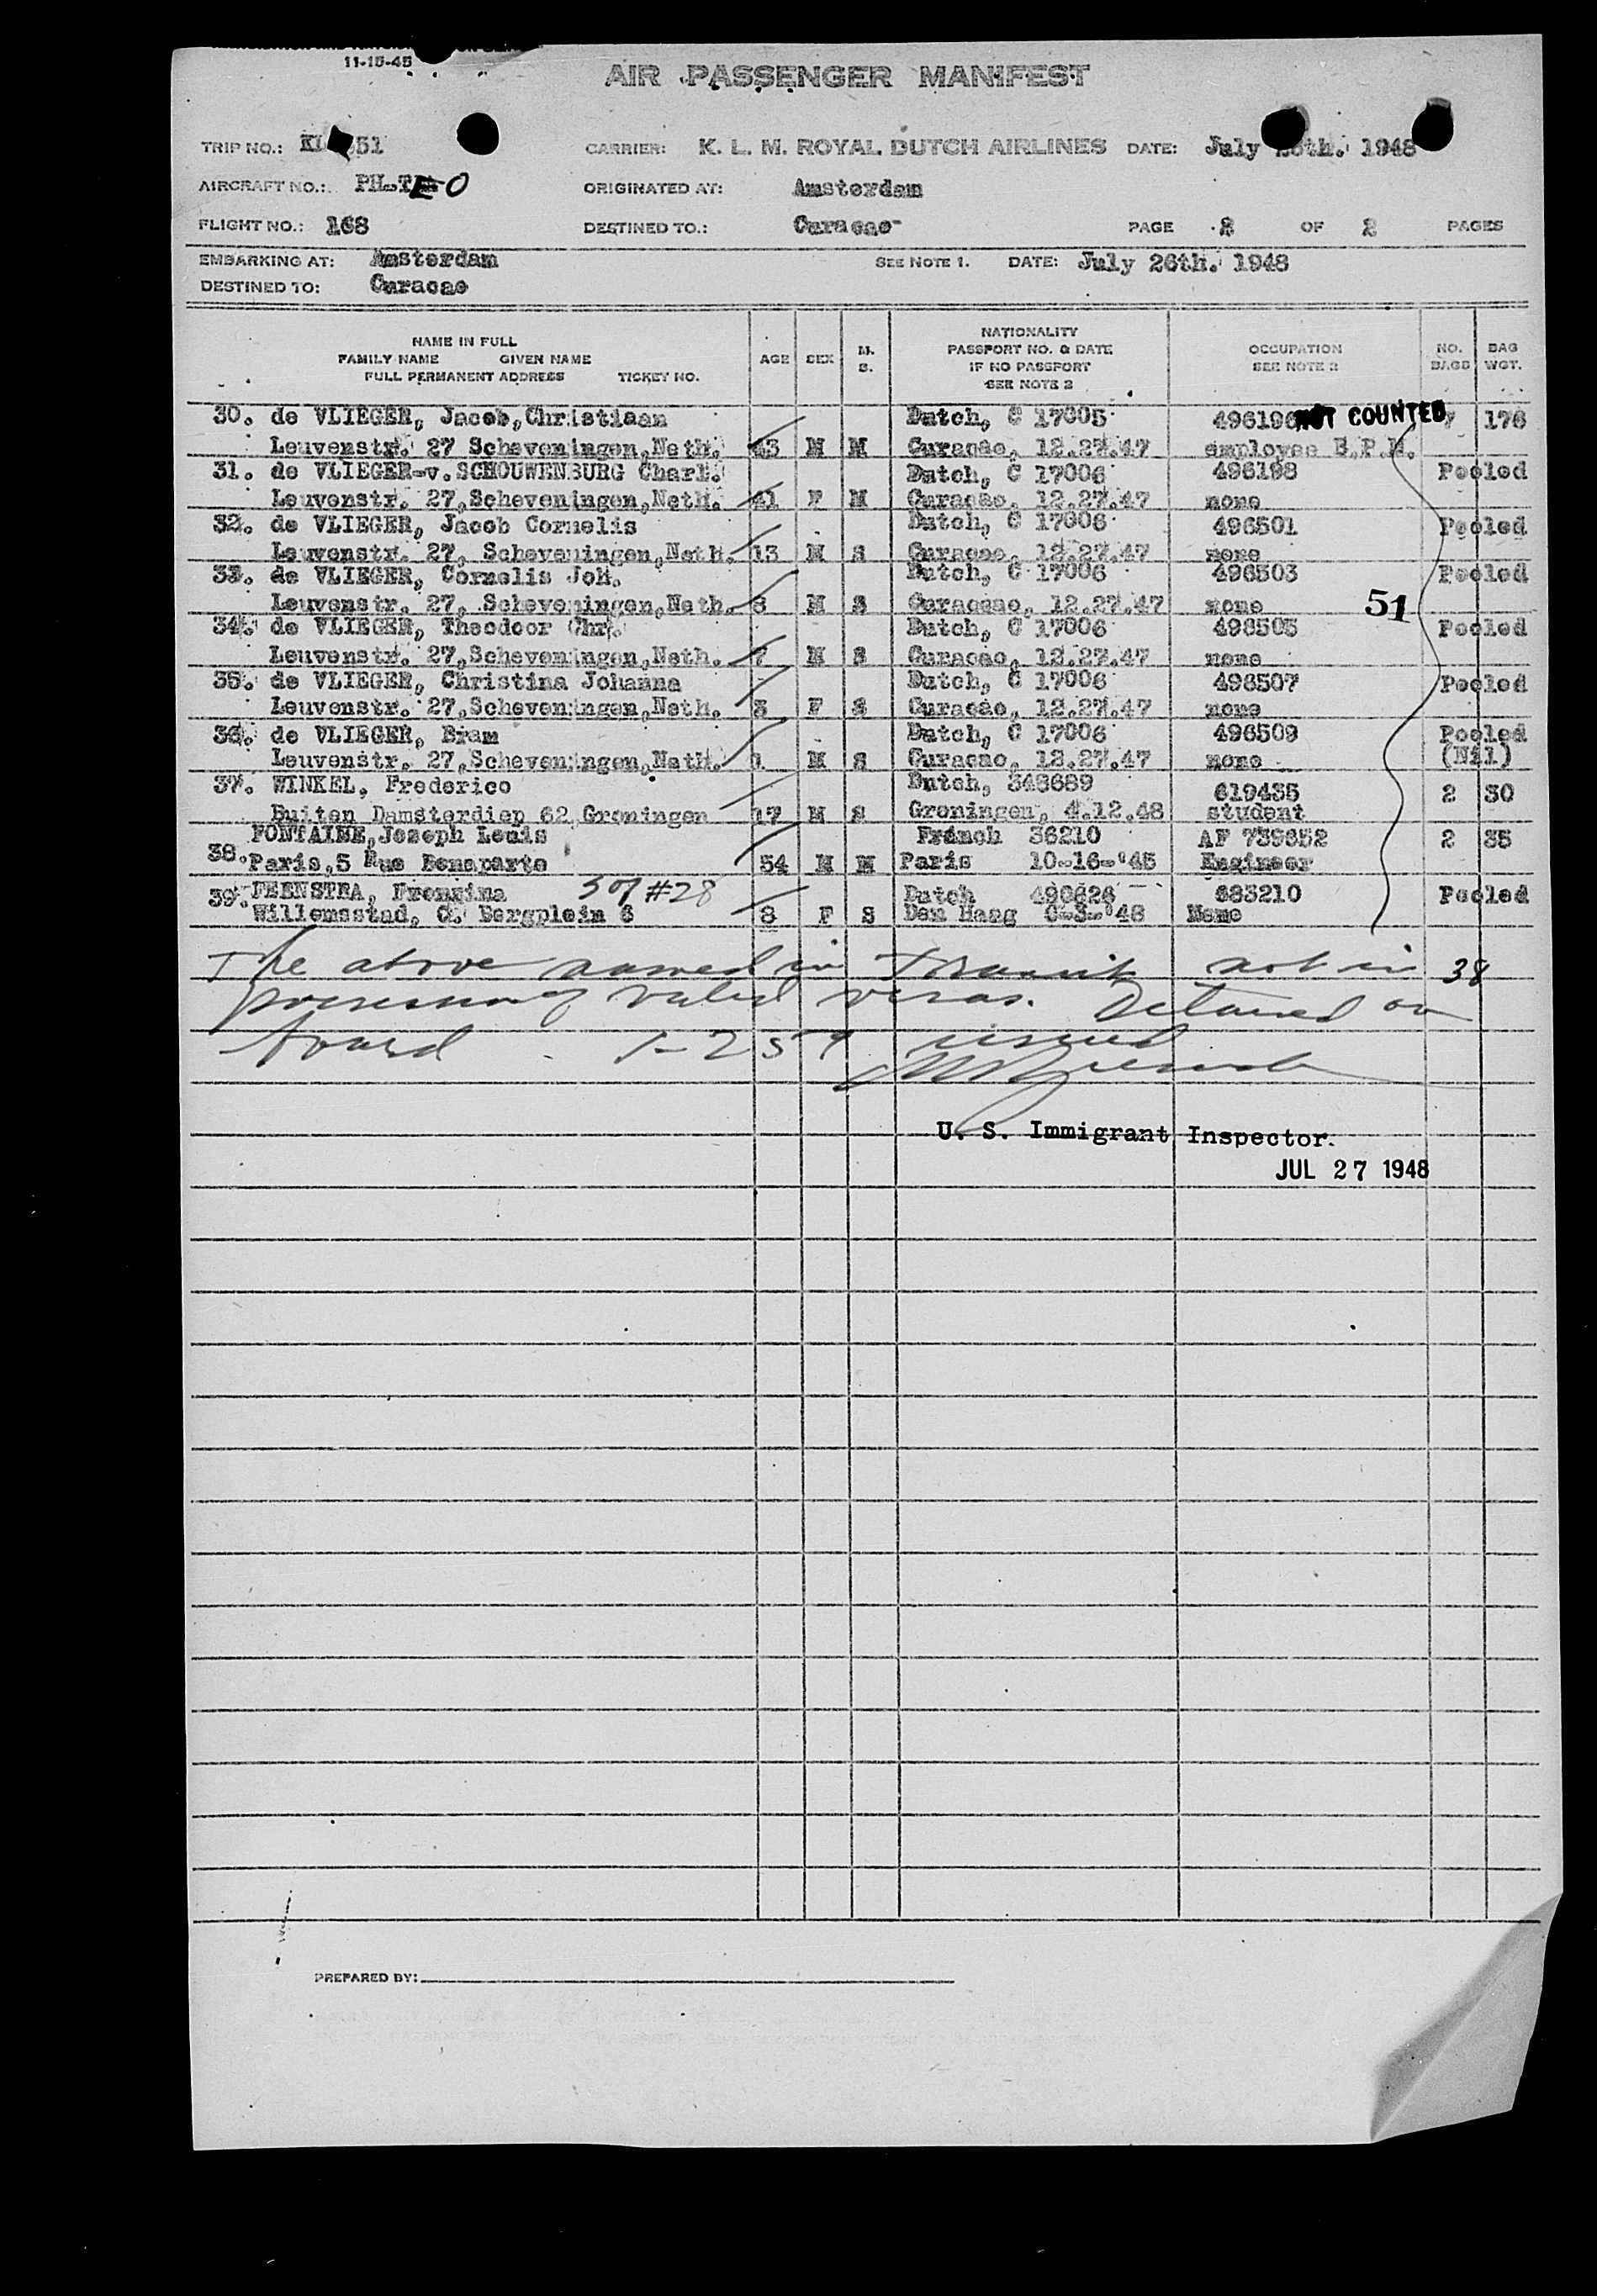 11-15-45
AIR PASSENGER MANIFEST
TRIP NO.: 51 CARRIER: K. L. M. ROYAL DUTCH AIRLINES DATE: July 1948
AIRCRAFT NO.: PH-TEO ORIGINATED AT: Amsterdam
FLIGHT NO.: 168 DESTINED TO.: Curacao PAGE 2 OF 2 PAGES
EMBARKING AT: Amsterdam SEE NOTE 1. DATE: July 26th. 1948
DESTINED TO: Curacao
NAME IN FULL
FAMILY NAME GIVEN NAME
FULL PERMANENT ADDRESS TICKET NO.
AGE SEX M. S.
NATIONALITY
PASSPORT NO. & DATE
IF NO PASSPORT
SEE NOTE 2
OCCUPATION
SEE NOTE 2
NO. BAGS
BAG WGT.
30. de VLIEGER, Jacob,Christiaan Dutch, C 17005 496196 NOT COUNTED 176
Leuvenstr. 27 Scheveningen,Neth. 43 M M Curaçao, 12.27.47 employee B.P.M.
31. de VLIEGER-v.SCHOUWENBURG Charl. Dutch, C 17006 496198 Pooled
Leuvenstr. 27,Scheveningen,Neth. 41 F M Curaçao, 12.27.47 none
32. de VLIEGER, Jacob Cornelis Dutch, C 17006 496501 Pooled
Leuvenstr. 27, Scheveningen,Neth. 13 M S Curacao, 12.27.47 none
33. de VLIEGER, Cornelis Joh. Dutch, C 17006 496503 Pooled
Leuvenstr. 27, Scheveningen,Neth. 8 M S Curacao, 12.27.47 none 51
34. de VLIEGER, Theodoor Chr. Dutch, C 17006 496505 Pooled
Leuvenstr. 27,Scheveningen,Neth. 7 M S Curacao, 12.27.47 none
35. de VLIEGER, Christina Johanna Dutch, C 17006 496507 Pooled
Leuvenstr. 27,Scheveningen,Neth. 3 F S Curacao, 12.27.47 none
36. de VLIEGER, Bram Dutch, C 17006 496509 Pooled
Leuvenstr. 27,Scheveningen,Neth. 1 M S Curacao, 12.27.47 none (Nil)
37. WINKEL, Frederico Dutch, 348689 619435 2 30
Buiten Damsterdiep 62,Groningen 17 M S Groningen, 4.12.48 student
FONTAINE,Joseph Louis French 36210 AF 739652 2 35
38. Paris,5 Rue Bonaparte 54 M M Paris 10-16-'45 Engineer
39. FEENSTRA, Frongina #28 Dutch 490626 683210 Pooled
Willemsstad, C. Bergplein 6 8 F S Den Haag 6-3-'48 None
The above named in Transit not in 38
possession of valid visas. Detained on
board I-259 issued
U. S. Immigrant Inspector.
JUL 27 1948
PREPARED BY: